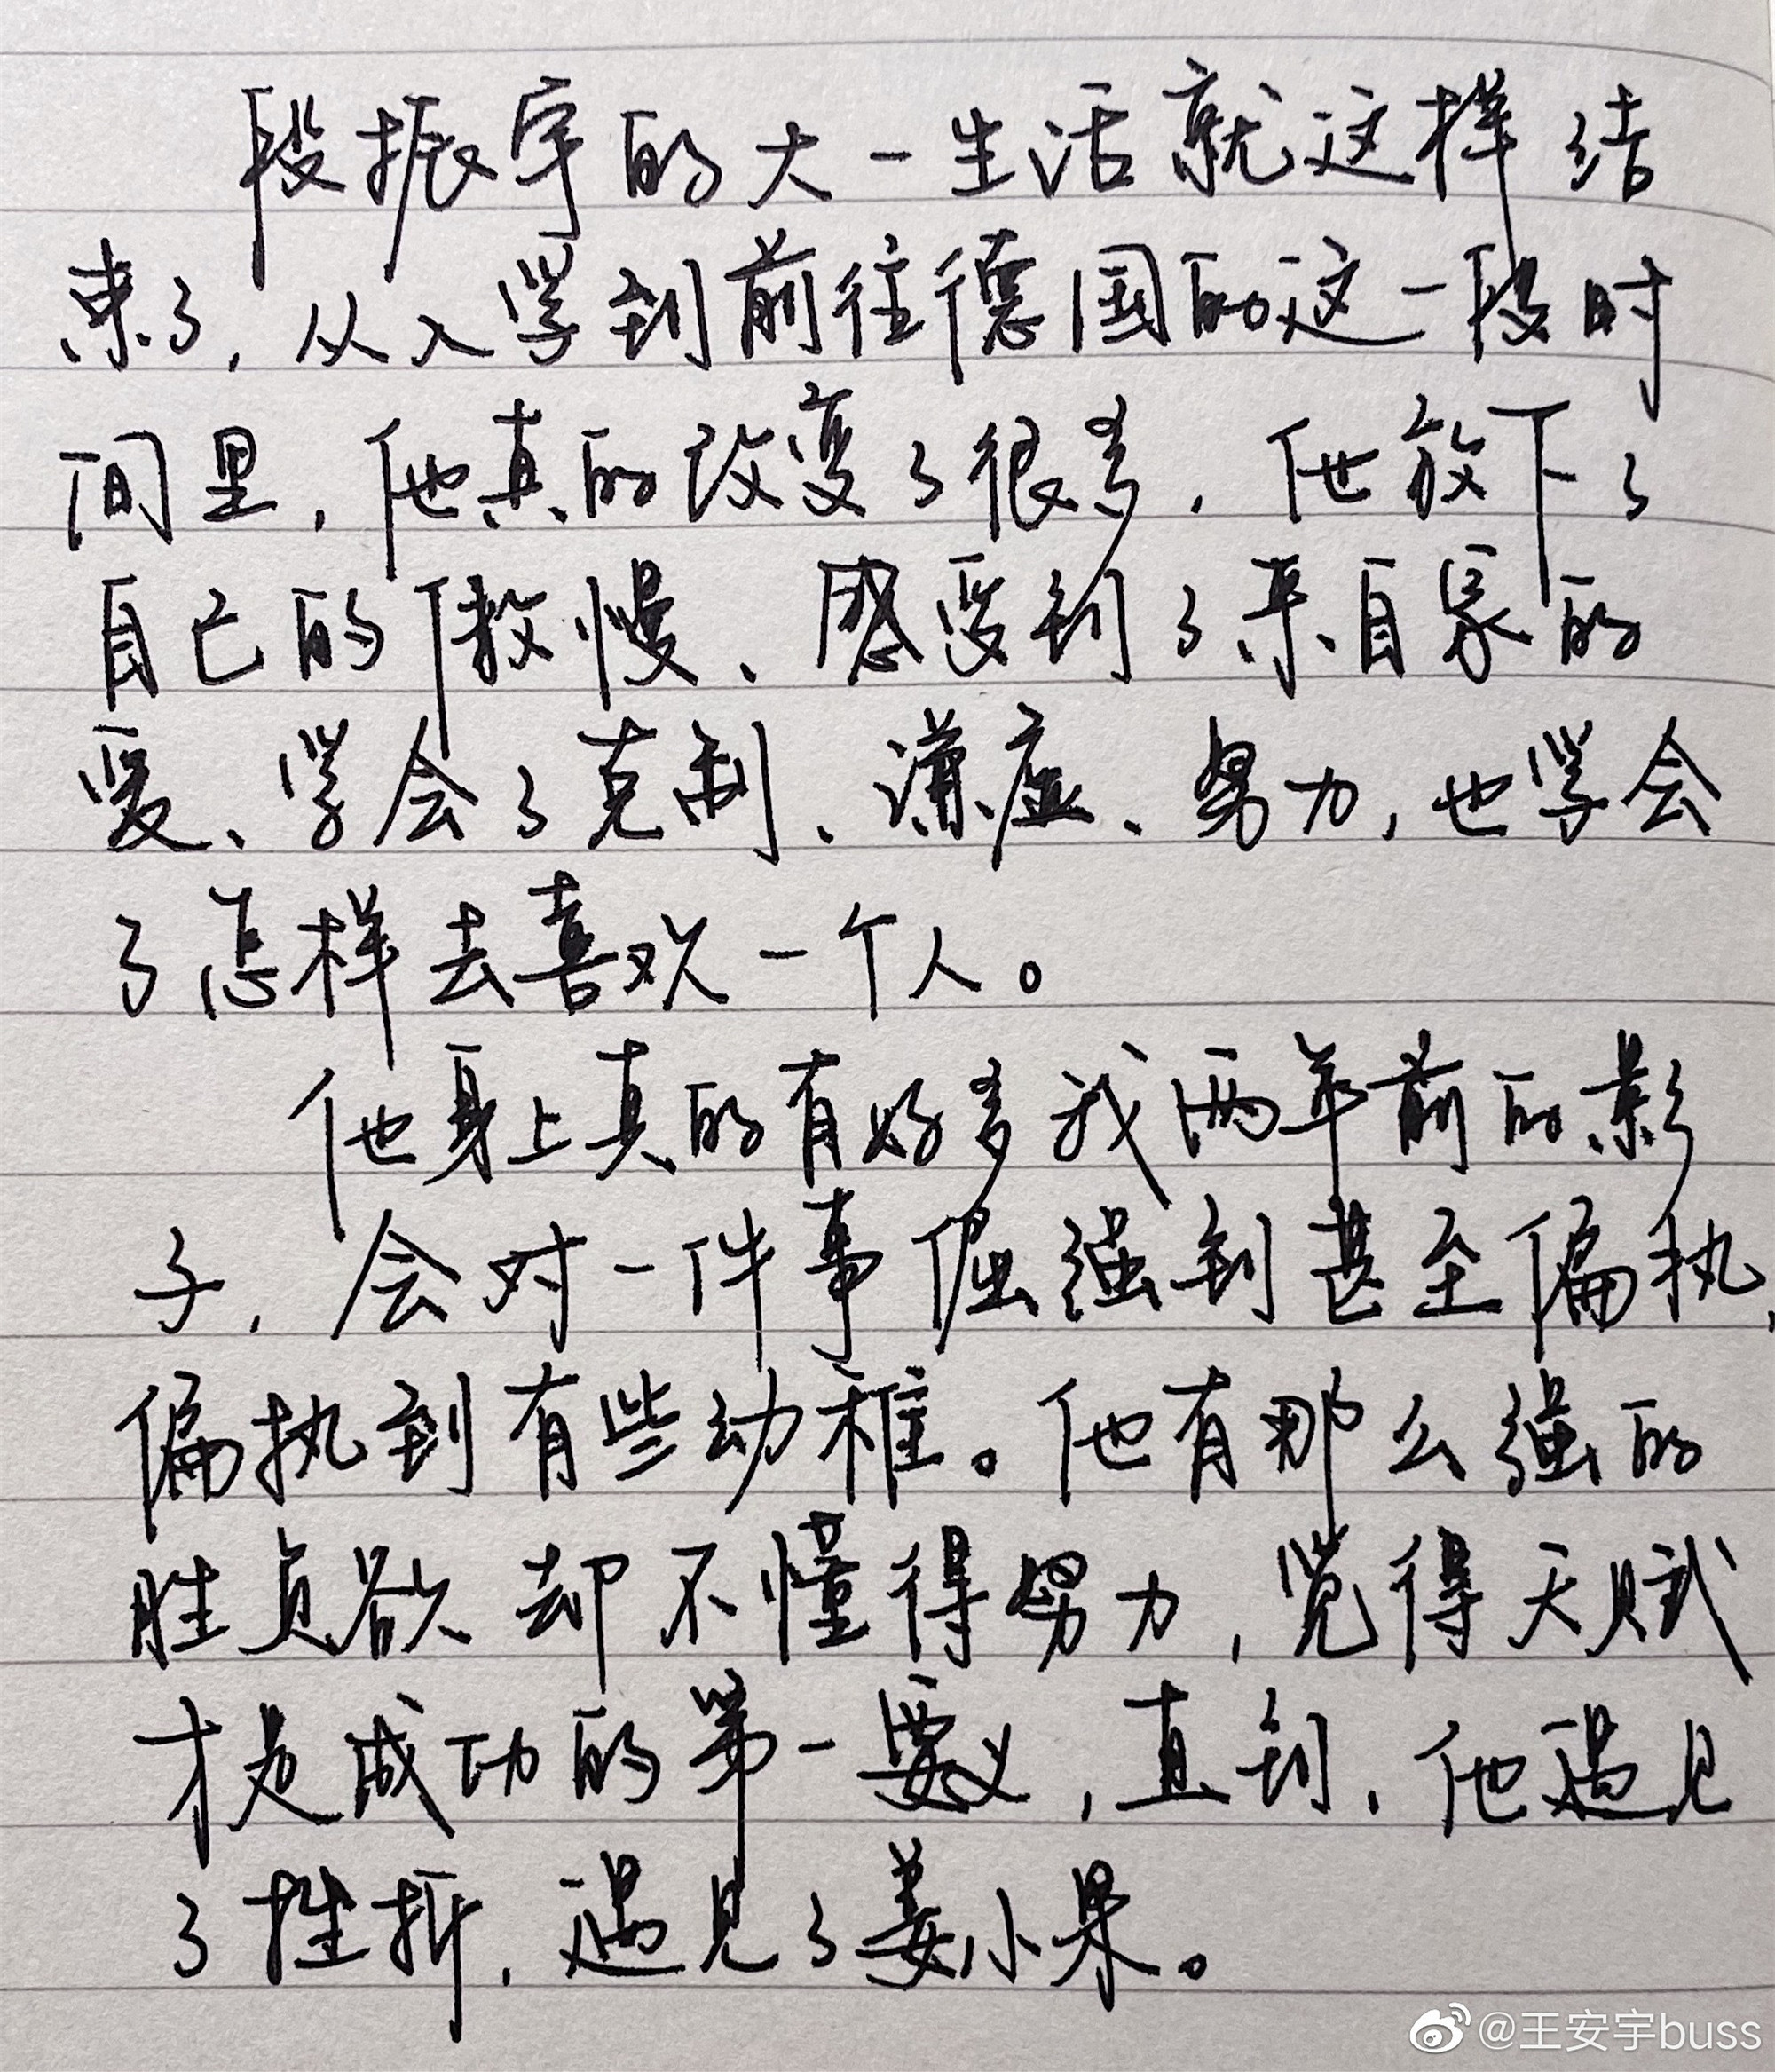 段振宇的大一生活就这样结
束了,从入学到前往德国的这一段时
间里,他真的改变了很多,他放下了
自己的傲慢、感受到了来自家的
爱、学会了克制、谦虚、努力,也学会
了怎样去喜欢一个人。
他身上真的有好多我两年前的影
子,会对一件事倔强到甚至偏执,
偏执到有些幼稚。他有那么强的
胜负欲却不懂得努力,觉得天赋
才是成功的第一要义,直到,他遇见
了挫折,遇见了姜小果。
@王安宇buss